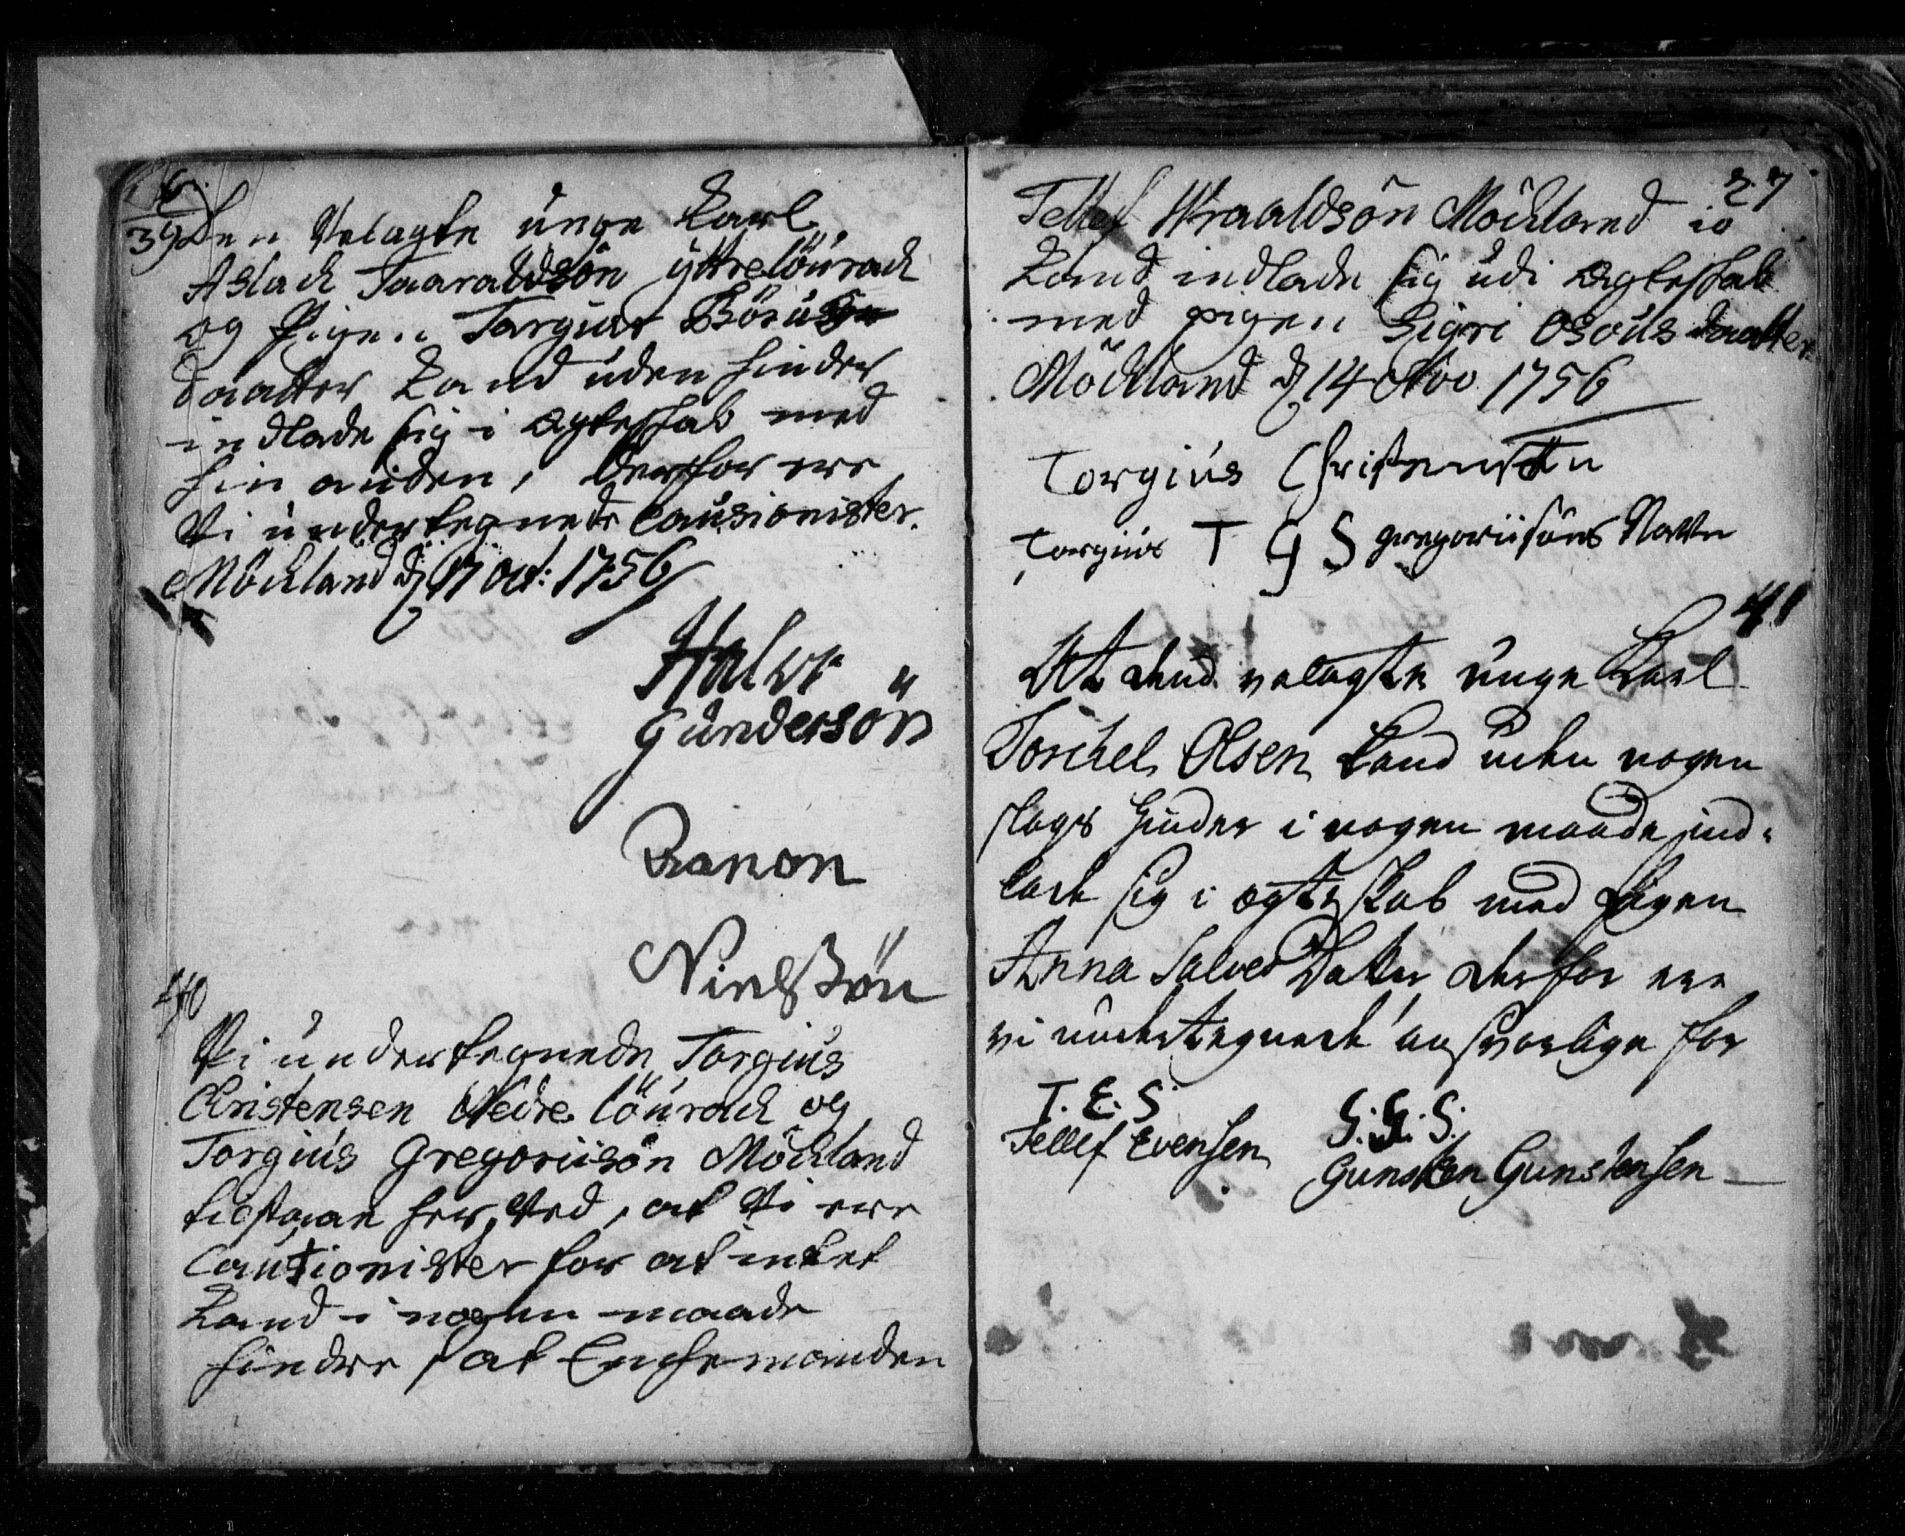 39 Den Velagte unge Karl
Aslack Taaraldsön yttrelöurack
og Pigen Torgiør
daatter Kand uden hinder
indlade sig i Ægteskab med
hin anden, derfor ere
Vi undertegnede Causionister.
Möckland d 17 oct: 1756
Halvor
Gundersön
Aanon
Nielssøn
40
Vi undertegnede Torgius
Christensen Nedre löurack og
Torgius Gregoriisön Möckland
tilstaae her ved, at Vi ere
Cautionister for at intet
Kand i nogen maade
hindre, at Enchemanden
27
Tellef Wraaldsön Möckland io
Kand indlade sig udi Ægteskab
med pigen Sigri Osouls daatter
Möckland d 14 Nov 1756
Torgius Christensön
Torgius T G S gregoriisöns Nafn
41
At dend velagte unge Karl
Torchel Olsen Kand uden nogen
slags hinder i nogen maade ind-
lade sig i ægteskab med Pigen
Anna Salves Datter derfor ere
vi undertegnede ansvarlige for
T. E. S. G. G. S.
Tellef Evensen Gunsten Gunstensen